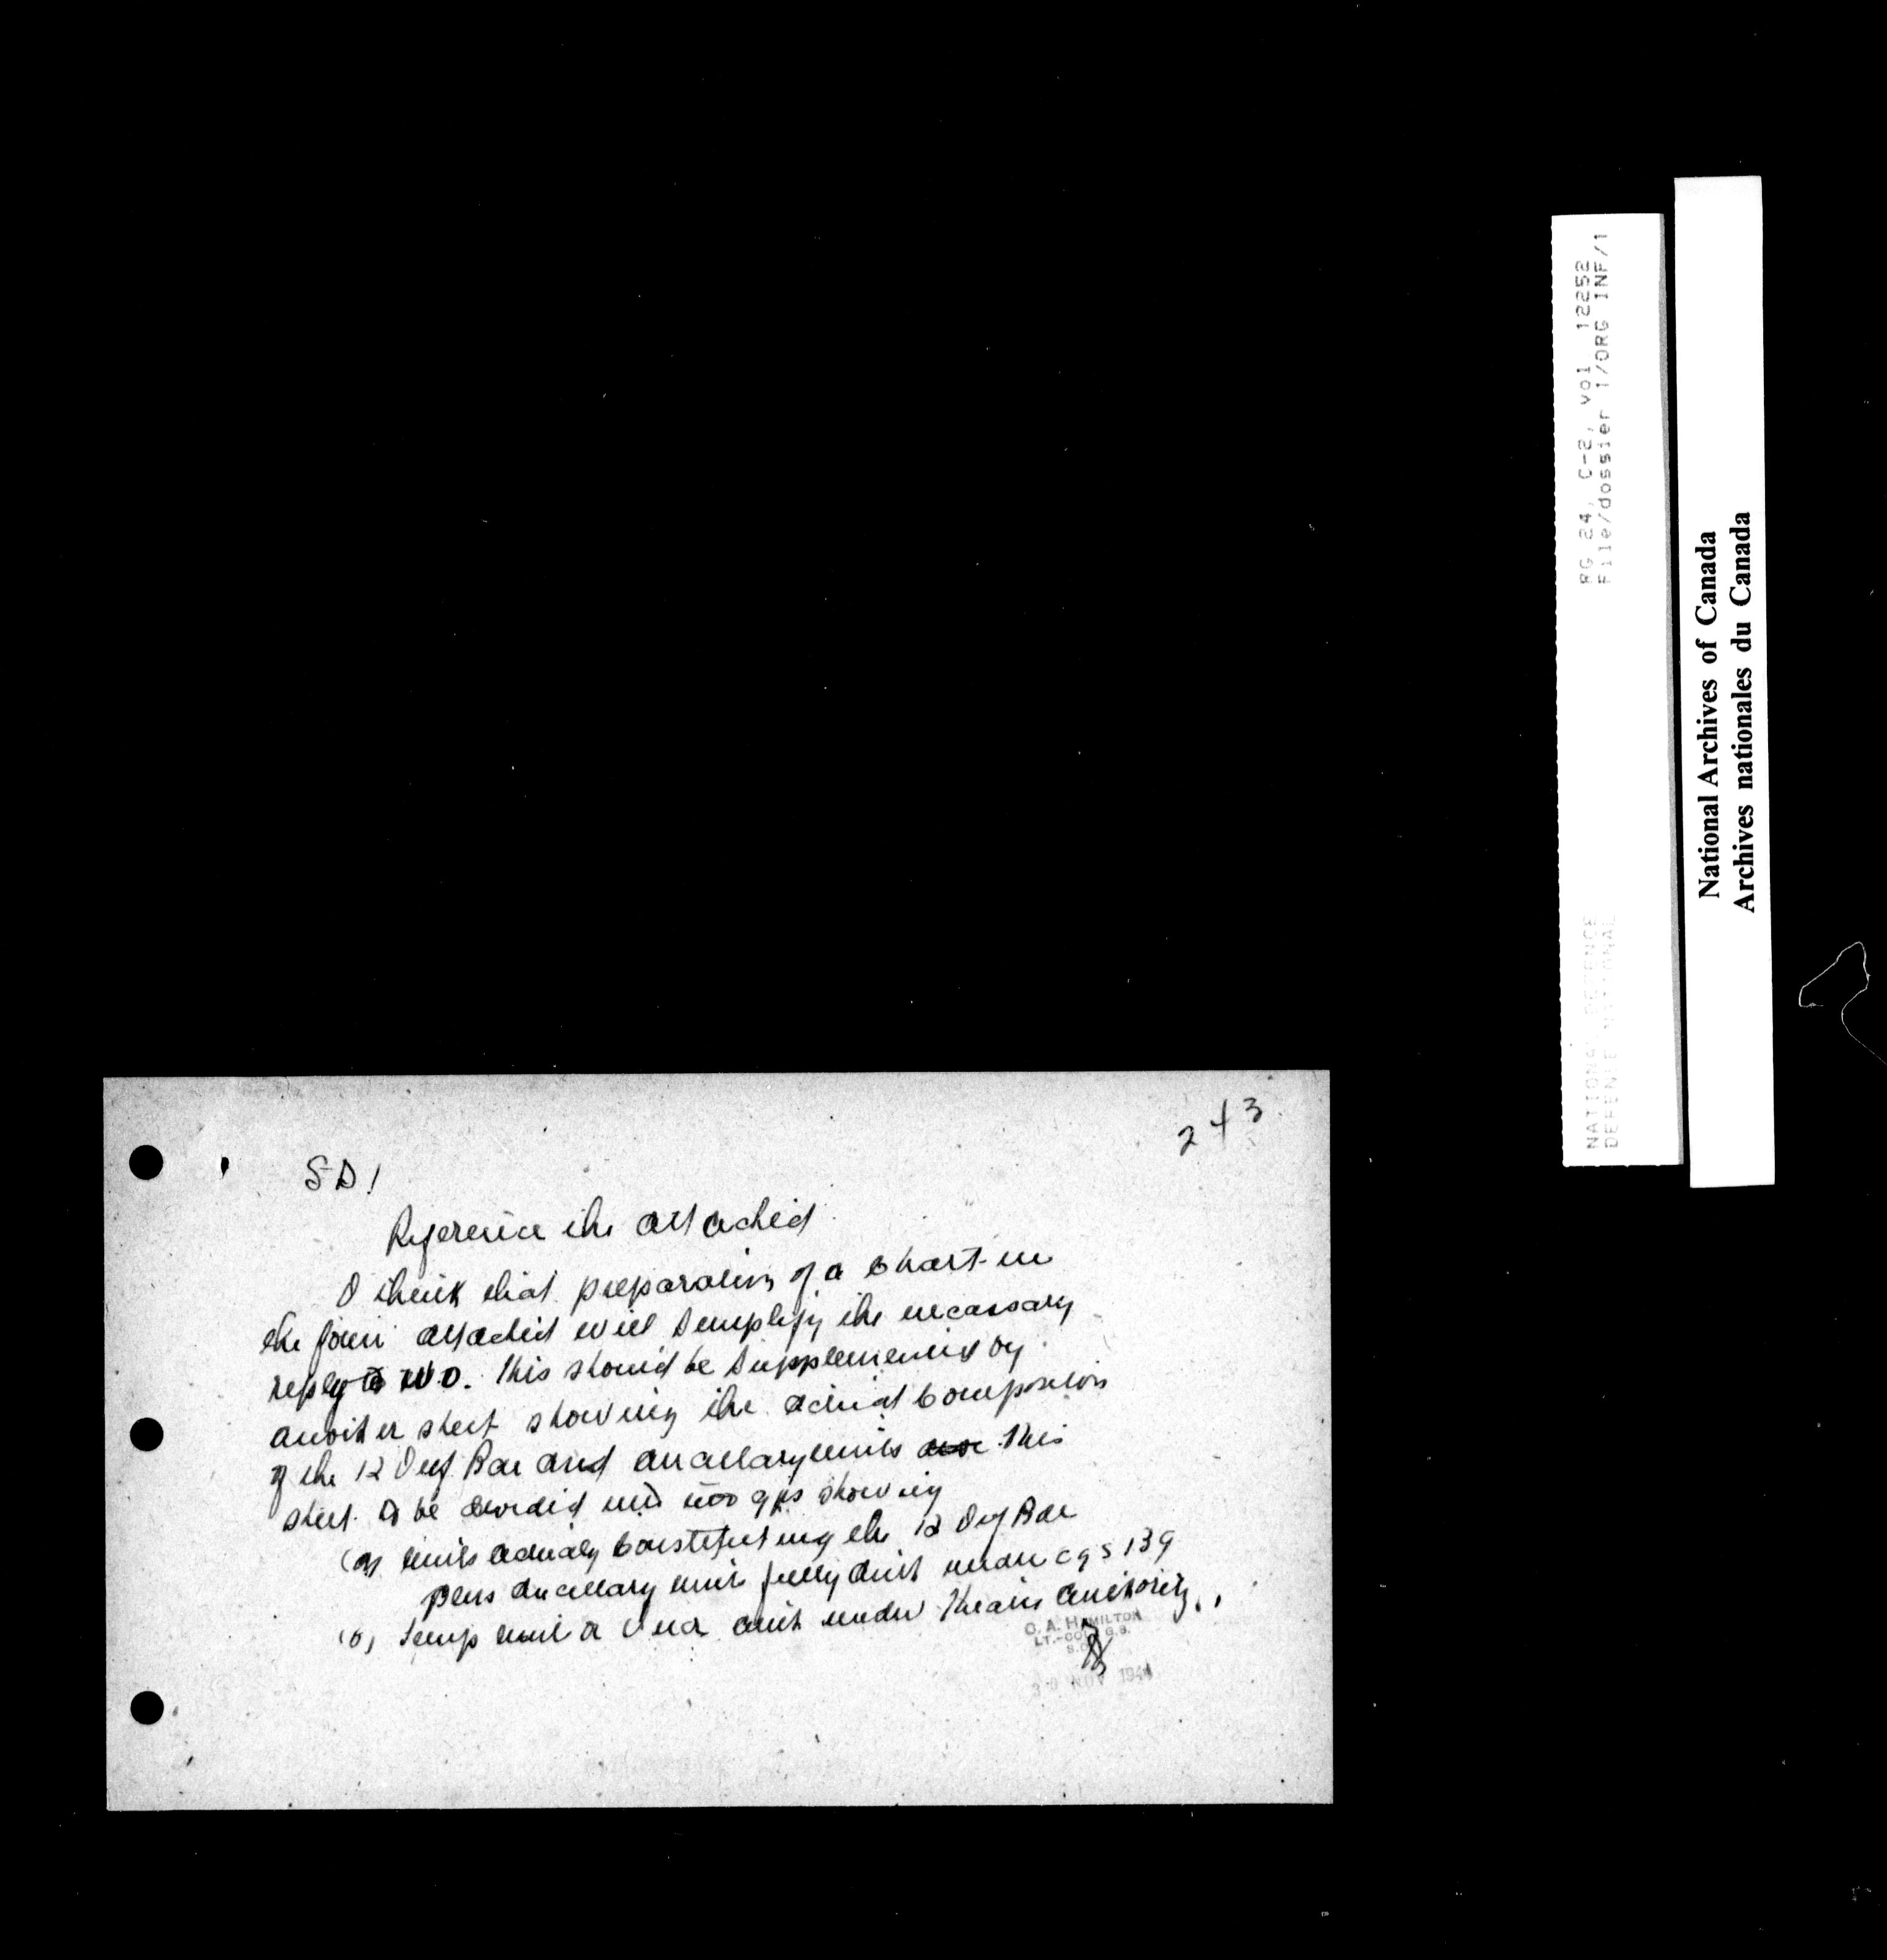 243
SD 1
Reference the attached
I think that preparation of a chart in
the form attached will simplify the necessary
reply to W.O. This should be supplemented by
another sheet showing the actual composition
of the 12 Def Bde and ancillary units This
sheet to be divided into two gps showing
(a) units actually constituting the 12 Def Bde
plus ancillary units fully auth under cgs 139
(b) Temp auth under
C. A. HAMILTON
LT.-COL. G.S.
NOV 1944
RG 24, C-2, vol 12252
File/dossier 1/ORG INF/1
NATIONAL DEFENCE
DEFENSE NATIONAL
National Archives of Canada
Archives nationales du Canada